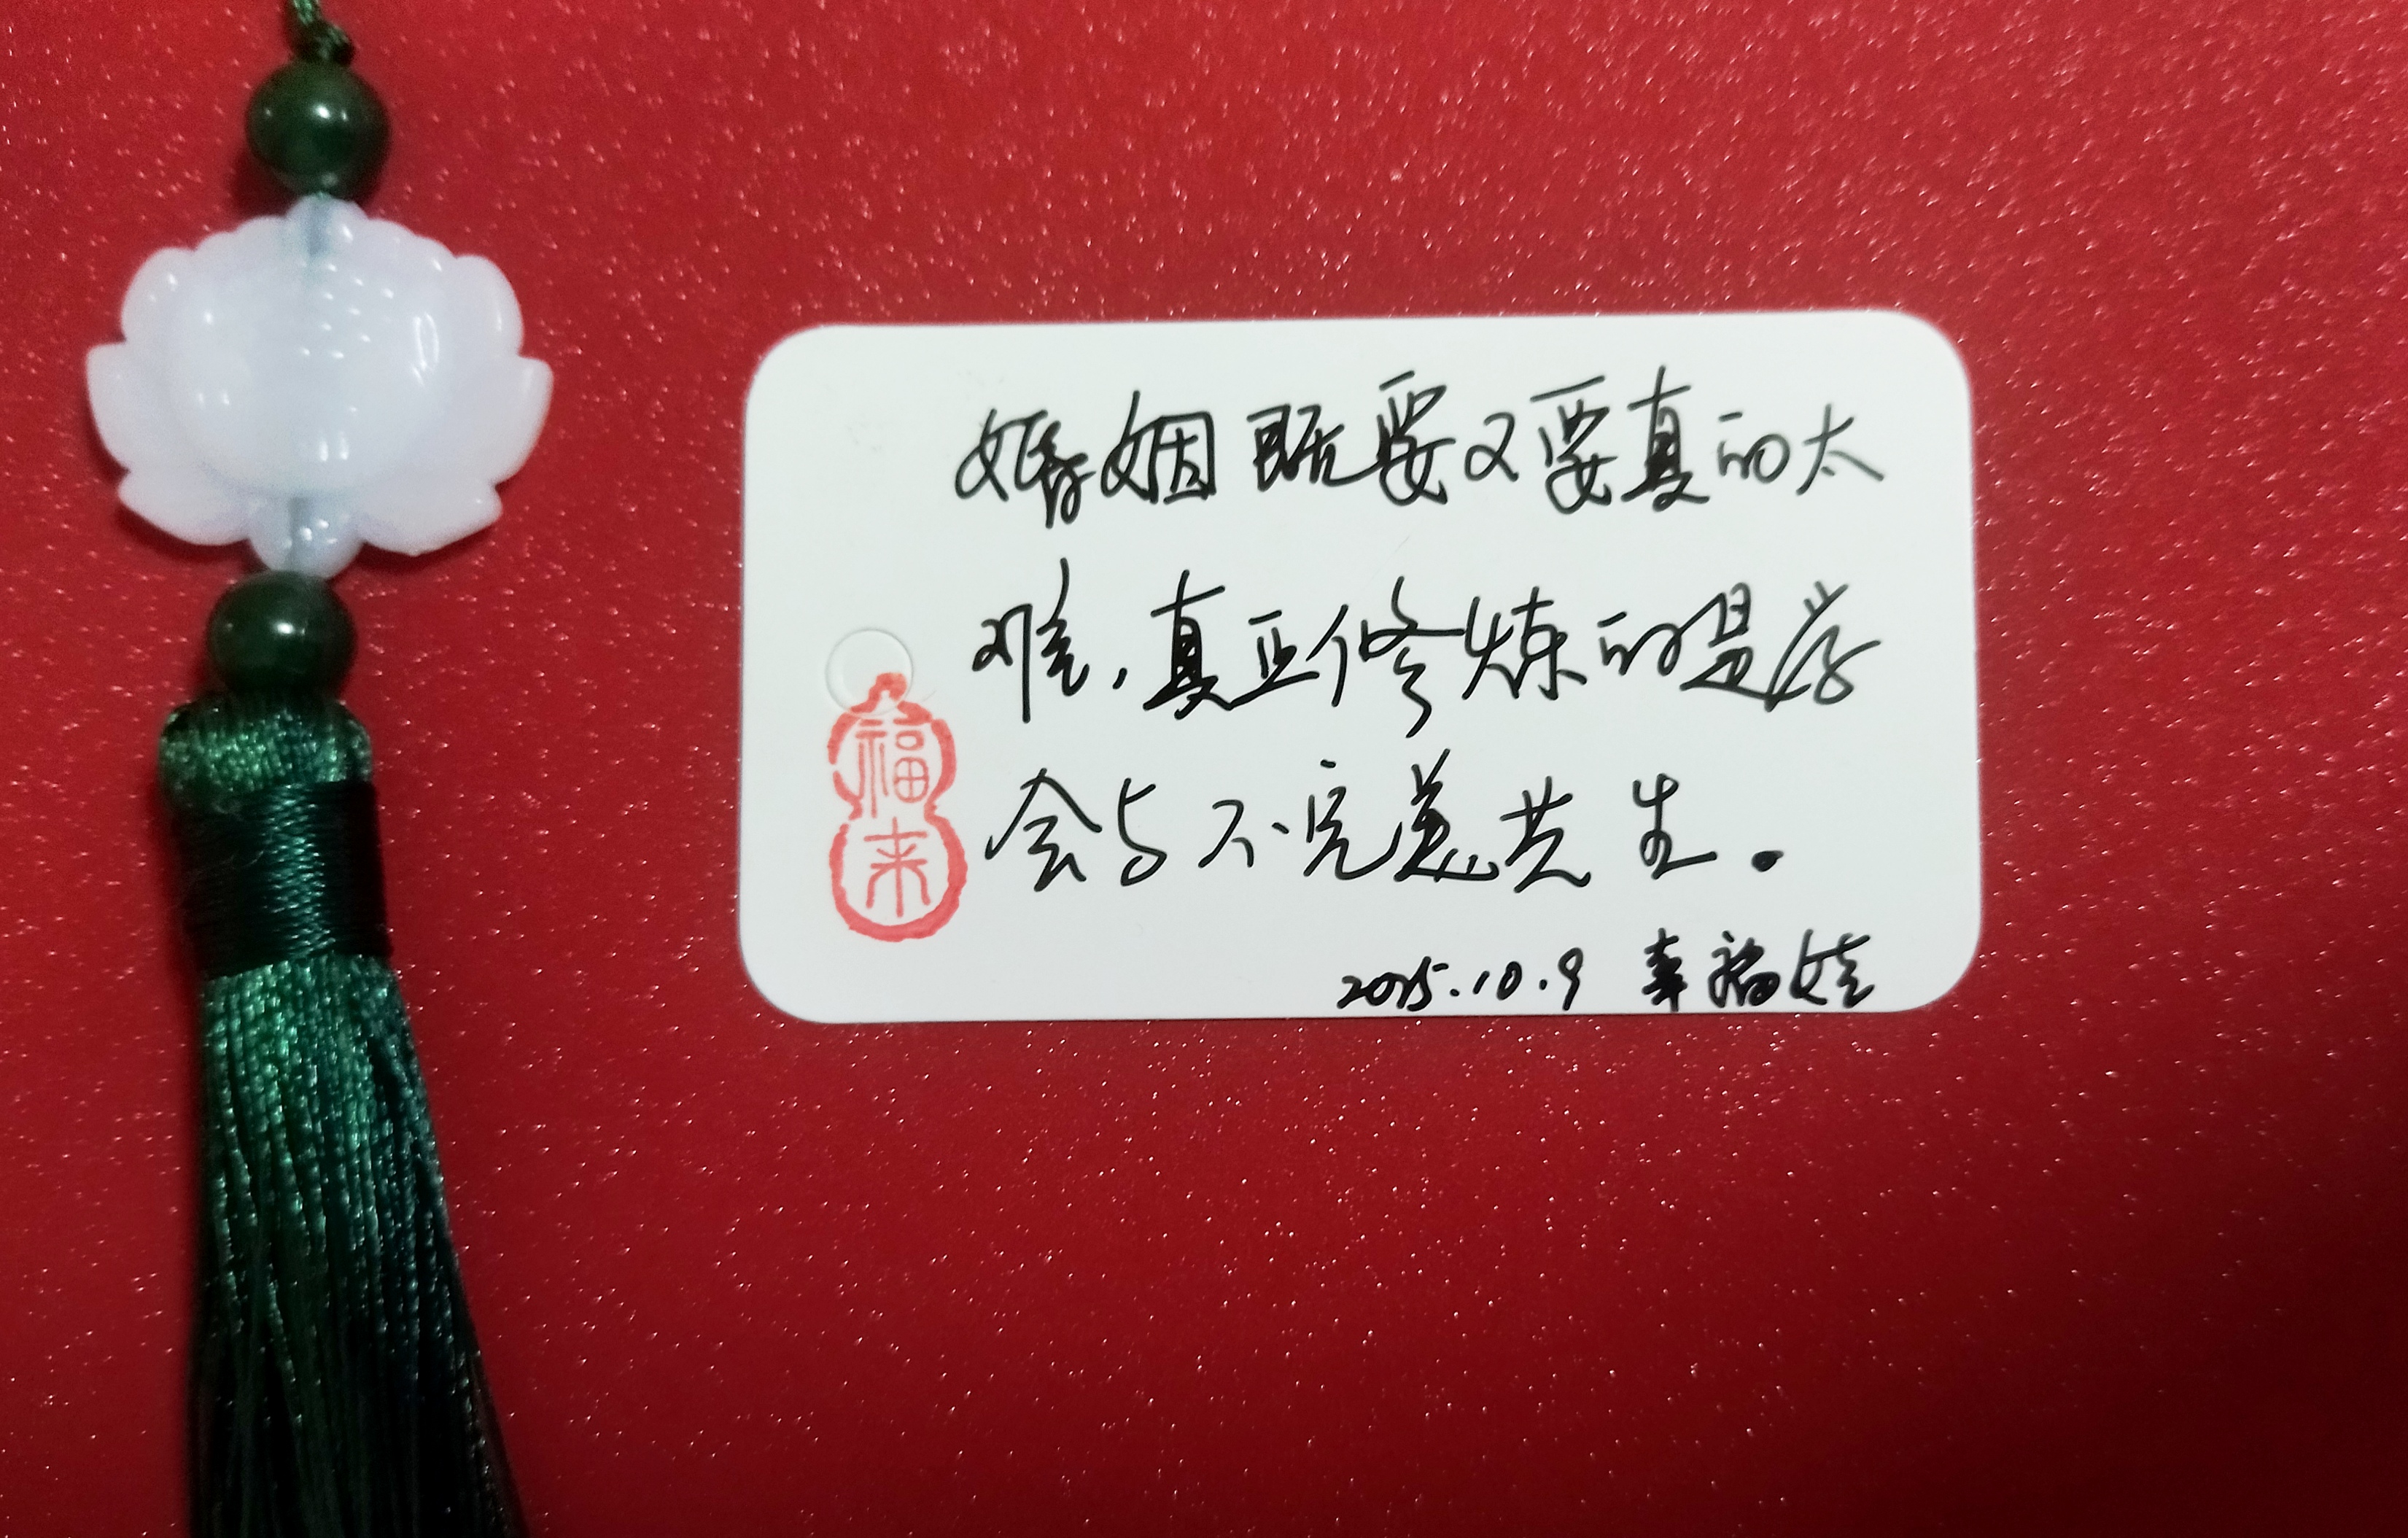 婚姻既要又要真的太
难，真正修炼的是学
会与不完美共生。
福来
2025.10.9 幸福娃